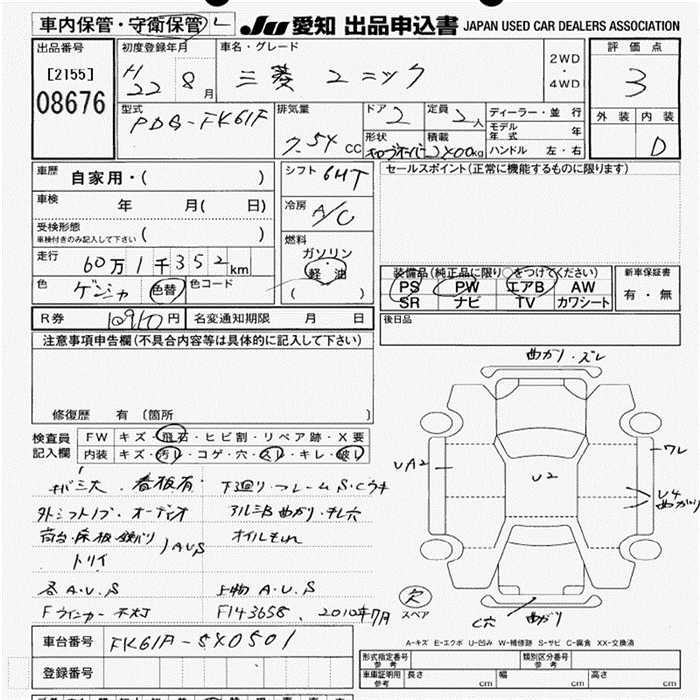 車内保管・守衛保管
JU 愛知 出品申込書 JAPAN USED CAR DEALERS ASSOCIATION
出品番号
[2155]
08676
初度登録年月
H22 8月
車名・グレード
三菱 ユニック
2WD
・
4WD
評価点
3
外装 内装
D
型式
PDG-FK61F
排気量
7.54 cc
ドア 2
定員 2人
形状
積載
kg
ディーラー・並行
モデル年式 年
ハンドル 左・右
車歴
自家用・( )
車検
年 月( 日)
受検形態
車検付きのみ記入して下さい ( )
走行
60万1千352km
色
色替
色コード
シフト 6MT
冷房 A/C
燃料
ガソリン
・
軽油
( )
セールスポイント(正常に機能するものに限ります)
装備品(純正品に限り○をつけてください)
PS PW エアB AW
SR ナビ TV カワシート
新車保証書
有・無
R券 10910円 名変通知期限 月 日
後日品
注意事項申告欄(不具合内容等は具体的に記入して下さい)
修復歴 有 (箇所 )
検査員記入欄
FW キズ・飛石・ヒビ割・リペア跡・X要
内装 キズ・汚レ・コゲ・穴・スレ・キレ・破レ
サビ大 . 看板有
下廻り・フレームS.Cウキ
外シフトノブ・オーディオ
アルミB曲がり・キレ穴
荷台・床板鉄バリ
トリイ
AUS
オイルもれ
各A.U.S
上物A.U.S
Fウインカー不灯
F143658. 2010年7月
車台番号 FK61F-5X0501
登録番号
曲がり・ズレ
ワレ
UA2
U2
U4
曲がり
欠
スペア
C穴
曲がり
A-キズ E-エクボ U-凹み W-補修跡 S-サビ C-腐食 XX-交換済
形式指定番号
参考
類別区分番号
参考
車庫証明用
参考
長さ cm
幅 cm
高さ cm